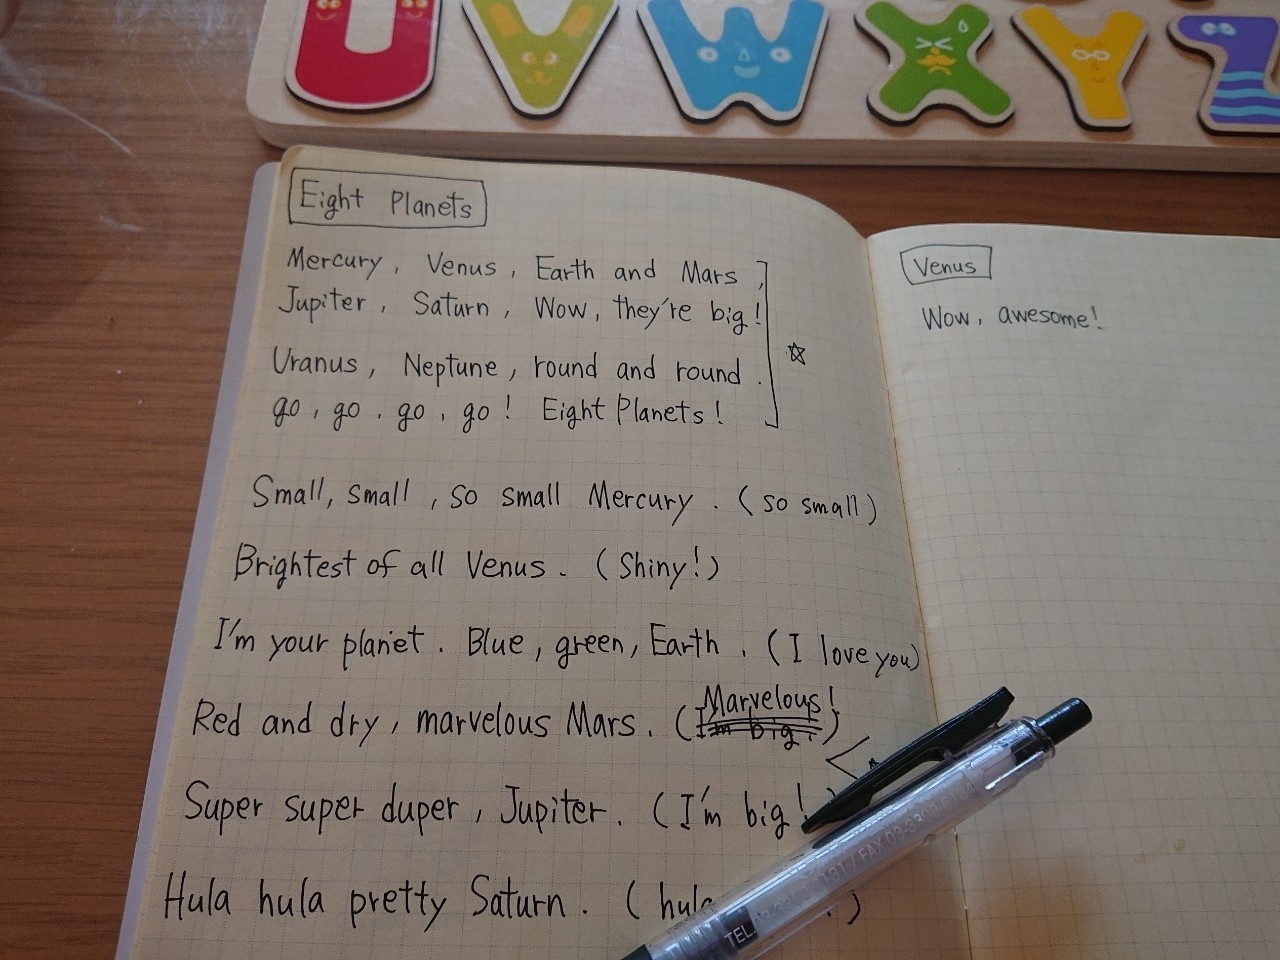 U V W X Y Z
Eight Planets
Mercury, Venus, Earth and Mars,
Jupiter, Saturn, Wow, they're big!
Uranus, Neptune, round and round.
go, go, go, go! Eight Planets!
☆
Small, small, so small Mercury. (so small)
Brightest of all Venus. (Shiny!)
I'm your planet. Blue, green, Earth. (I love you)
Red and dry, marvelous Mars. (Marvelous!)
I'm big!
Super super duper, Jupiter. (I'm big!
Hula hula pretty Saturn. (
Venus
Wow, awesome!
TEL